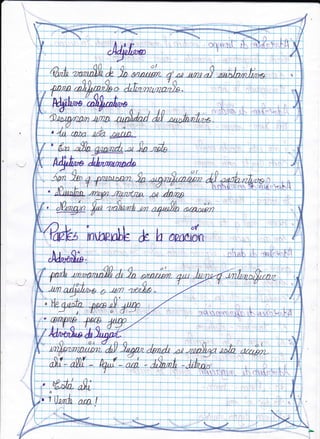 Adjetivo
Parte variable de la oración q se une al sustantivo
para calificarlo o determinarlo.
Adjetivo calificativo
Designan una cualidad del sustantivo.
• tu casa esta sucia
• Ese silla grande se ha roto
Adjetivo determinado
son los q precisan la significación del sustantivo
• Nuestra mejor nevera se daño
• Jorge fue valiente en aquella ocasión
Partes invariable de la oración
Adverbio.
parte invariable de la oración que
un adjetivo o un verbo.
• Me gusta poco el jugo
• compro poco jugo
Adverbio de lugar
información del lugar donde se realiza esta acción
ahi - alli - Aqui - aca - delante - detras
• Está ahi
• ¡ Vente aca !